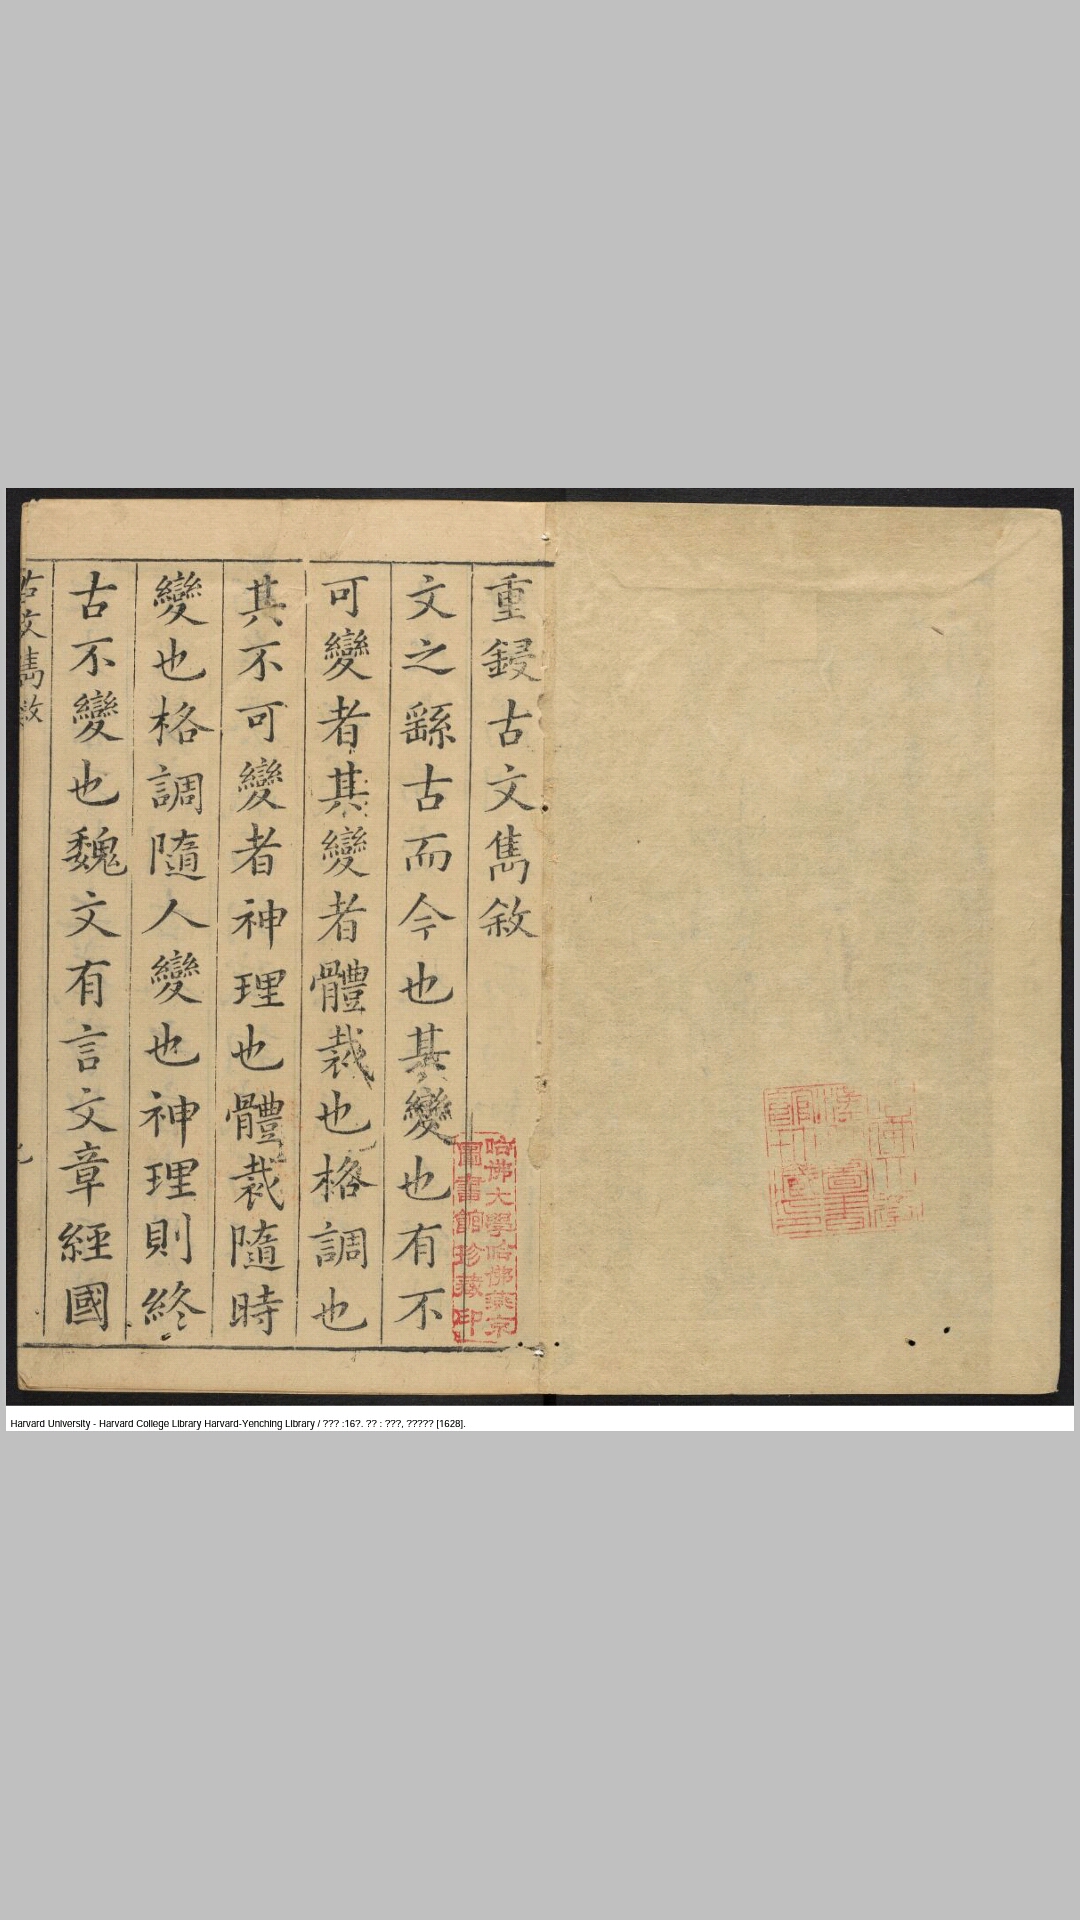 重鋟古文雋敘
文之繇古而今也其變也有不
可變者其變者體裁也格調也
其不可變者神理也體裁隨時
變也格調隨人變也神理則終
古不變也魏文有言文章經國
古文雋敘
哈佛大學哈佛燕京
圖書館珍藏印
Harvard University - Harvard College Library Harvard-Yenching Library / ??? :16?. ?? : ???, ????? [1628].